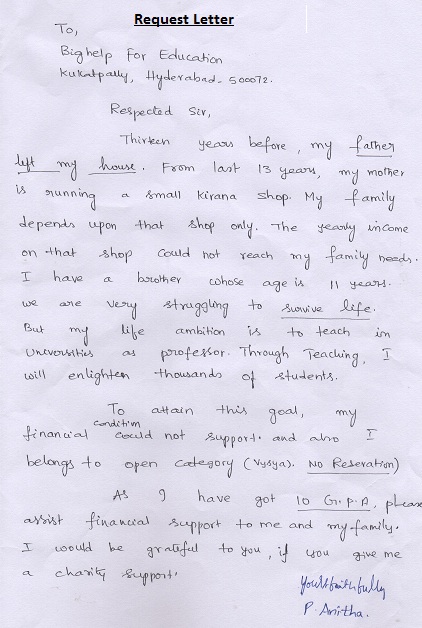 Request Letter
To,
Bighelp For Education
Kukatpally, Hyderabad - 500072.
Respected Sir,
Thirteen years before, my father
left my house. From last 13 years, my mother
is running a small kirana shop. My family
depends upon that shop only. The yearly income
on that shop could not reach my family needs.
I have a brother whose age is 11 years.
we are very struggling to survive life.
But my life ambition is to teach in
Universities as professor. Through Teaching, I
will enlighten thousands of students.
To attain this goal, my
financial condition could not support. and also I
belongs to open category (Vysya). No Reservation)
As I have got 10 G.P.A, please
assist financial support to me and my family.
I would be grateful to you, if you give me
a charity support.
Yours faithfully
P. Anitha.